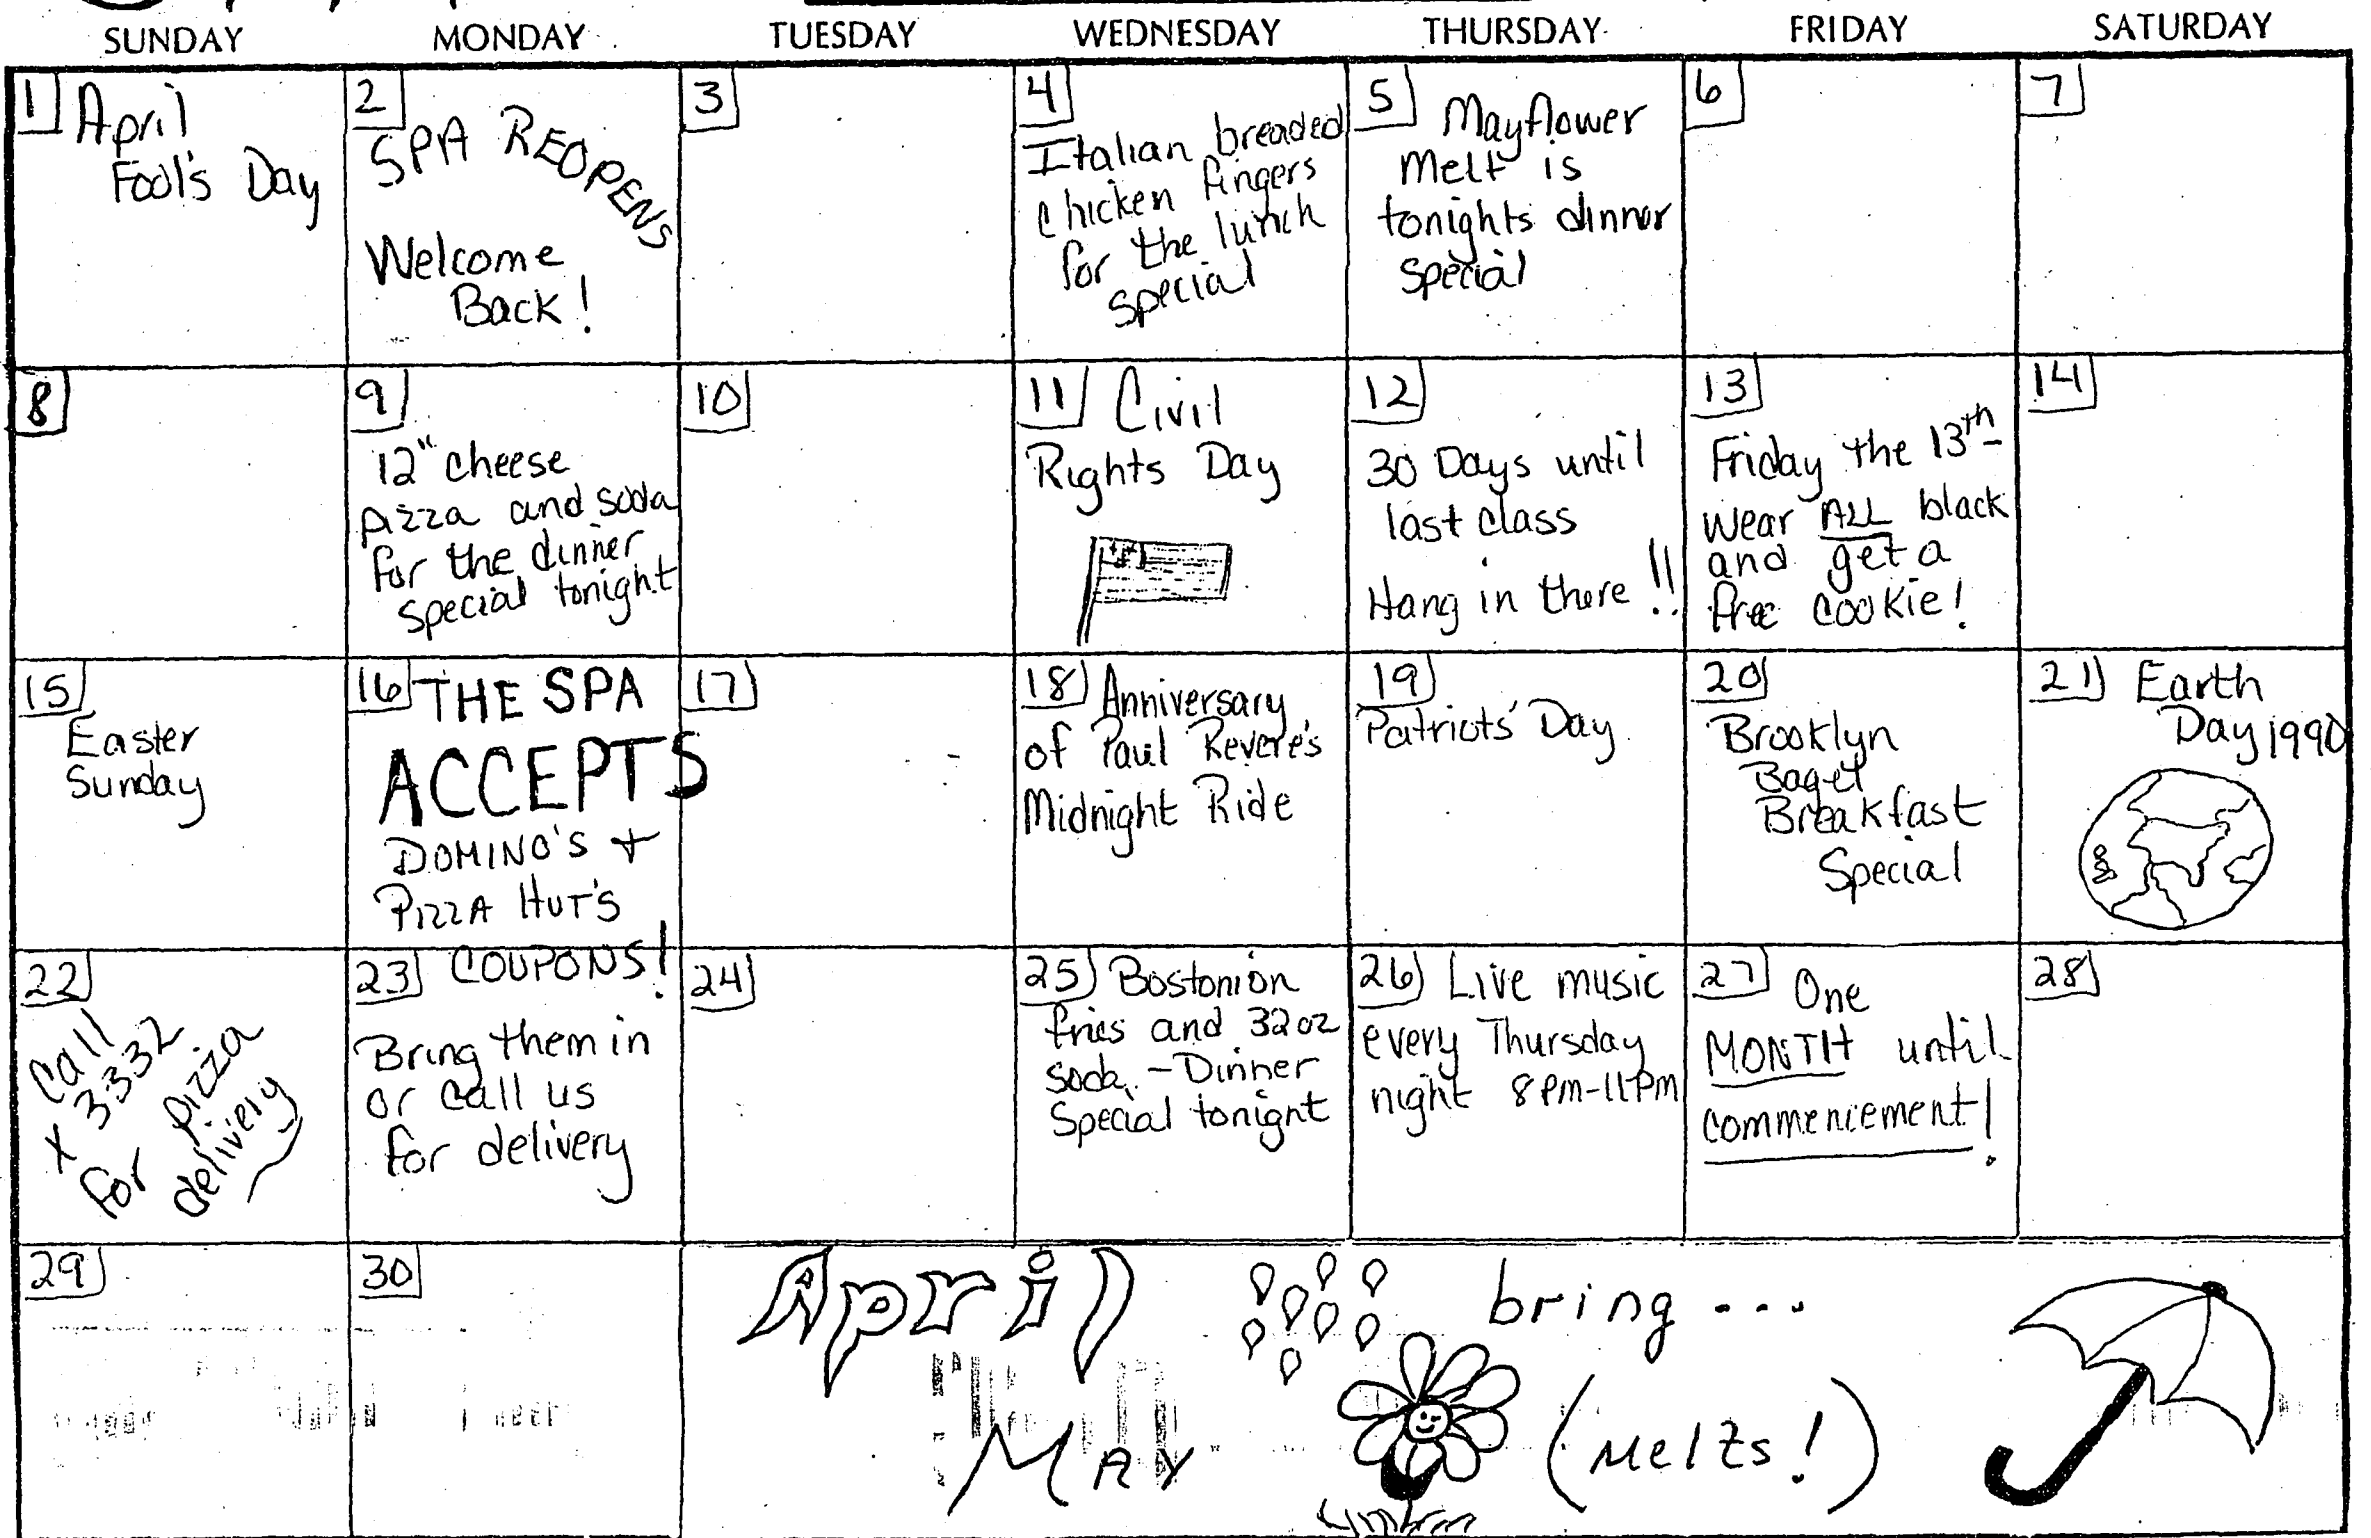 SUNDAY MONDAY TUESDAY WEDNESDAY THURSDAY FRIDAY SATURDAY
1 April
Fool's Day
2
SPA REOPENS
Welcome
Back!
3
4
Italian breaded
chicken fingers
for the lunch
special
5 Mayflower
Melt is
tonights dinner
special
6
7
8
9
12" cheese
pizza and soda
for the dinner
special tonight
10
11 Civil
Rights Day
12
30 Days until
last class
Hang in there!!
13
Friday the 13th-
wear ALL black
and get a
free cookie!
14
15
Easter
Sunday
16 THE SPA
ACCEPTS
DOMINO'S +
PIZZA HUT'S
COUPONS!
17
18 Anniversary
of Paul Revere's
Midnight Ride
19
Patriots' Day
20
Brooklyn
Bagel
Breakfast
Special
21 Earth
Day 1990
22
Call
x 3332
for pizza
delivery
23
Bring them in
or call us
for delivery
24
25 Bostonion
fries and 32oz
soda. - Dinner
Special tonight
26 Live music
every Thursday
night 8pm-11pm
27 One
MONTH until
commencement!
28
29
30
April bring...
MAY (Melts!)